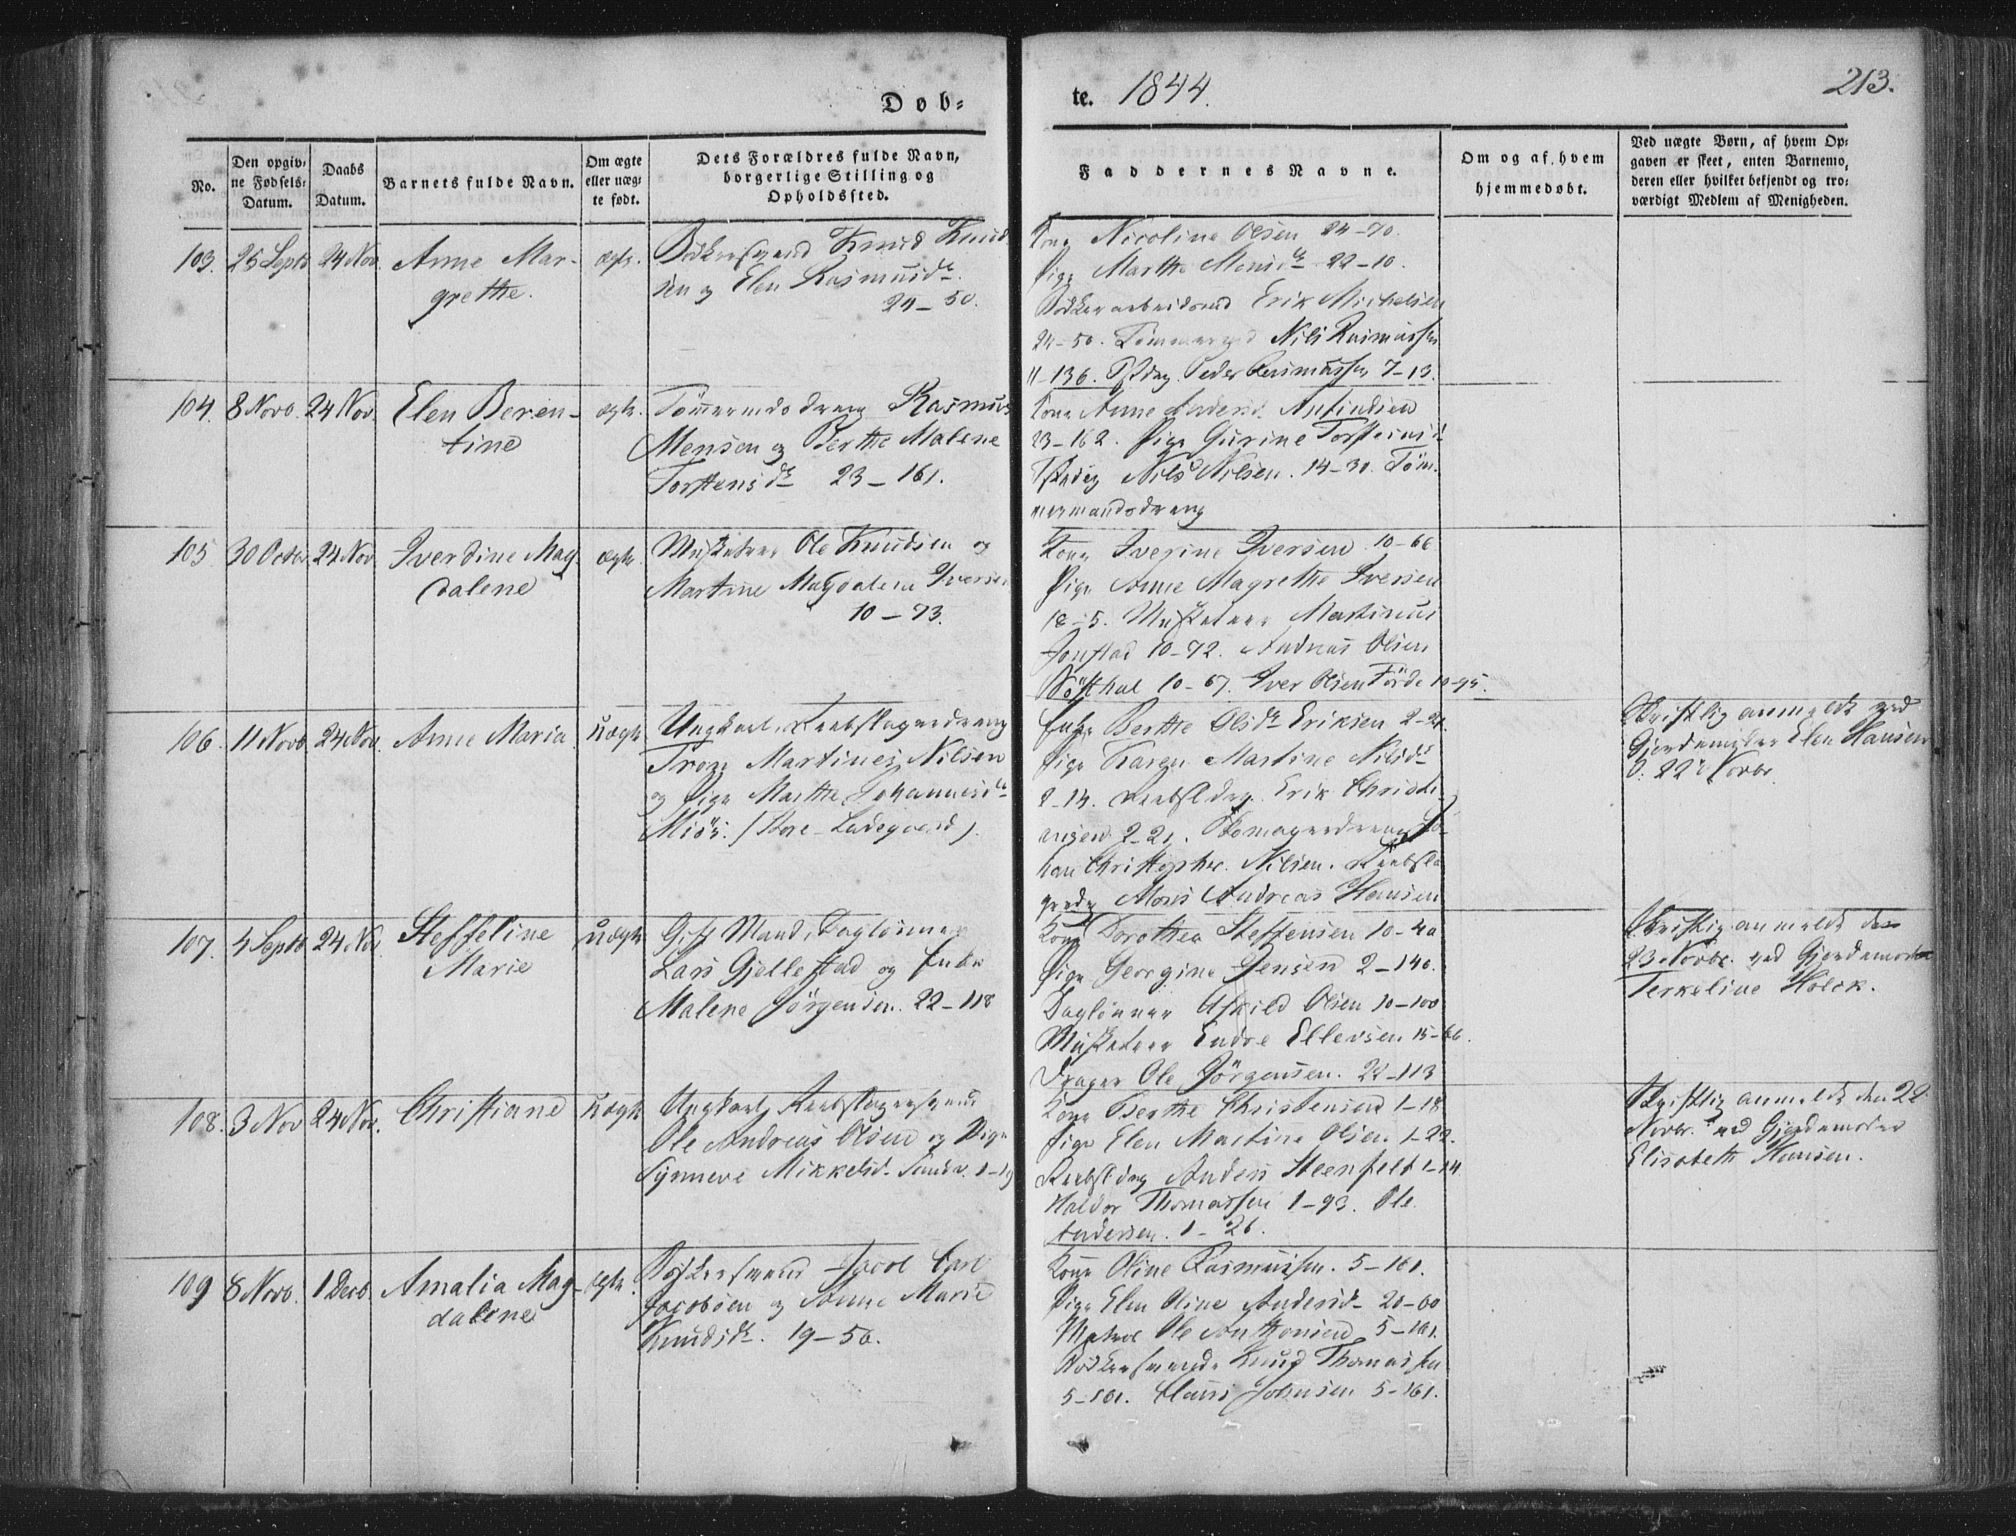 Døb=
te. 1844.
213.
No.
Den opgiv=
ne Fødsels=
Datum.
Daabs
Datum.
Barnets fulde Navn.
Om ægte
eller uæg=
te født.
Dets Forældres fulde Navn,
borgerlige Stilling og
Opholdssted.
Faddernes Navne.
Om og af hvem
hjemmedøbt.
Ved uægte Børn, af hvem Op=
gaven er skeet, enten Barnemo=
deren eller hvilket bekjendt og tro=
værdigt Medlem af Menigheden.
103. 26 Septb 24 Nov. Anne Mar-
grethe.
ægte.
Bødkersvend Knud Knud
sen og Elen Rasmusdr
24-50.
Kone Nicoline Olsen 24-70.
Pige Marthe Monsdr 22-10.
Bødkerarbeidsmd Erik Michelsen
24-50. Tømmermd Nils Rasmussen
11-136. Peder Rasmussen 7-13.
104. 8 Novb. 24 Nov. Elen Beren-
tine
ægte.
Tömmermdsdreng Rasmus
Monsen og Berthe Malene
Torstensdr 23-161.
Kone Anne Andersd
23-162. Pige Gurine Torstensd
Nils Nilsen. 14-30. Töm-
mermandsdreng
105 30 Octbr. 24 Nov. Iverdine Mag-
dalene
ægte.
Musketeer Ole Knudsen og
Martine Magdalena Iversen
10-73.
Kone Iverine Iversen 10-66
Pige Anne Magrethe Iversen
18-5. Musketeer Martinus
Jonstad 10-72. Andreas Olsen
10-67. Iver Olsen Förde 10-95.
106. 11 Novb. 24 Nov. Anne Maria
uægte
Ungkarl, Reebslagerdreng
Martines Nilsen
og Pige Marthe Johannesdr
(Store-Ladegaard).
Enke Berthe Olsdr Eriksen 2-21.
Pige Karen Martine Nilsdr
2-14. Reebsldrg. Erik Christi-
ansen 2-21. Skomagerdreng Jo-
han Christopher Nilsen. Reebsla
gerdrg Mons Andreas Hansen
Skriftlig anmeldt ved
Gjordemoder Elen Hansen
d. 22d Novbr.
107. 4 Septb 24 Nov. Steffeline
Marie
uægte
Gift Mand, Daglønner
Lars Gjellestad og Enke
Malene Jørgensen. 22-118
Kone Dorothea Steffensen 10-40
Pige Georgine Jensen 2-140.
Daglønner Askild Olsen 10-100
Musketeer Endre Ellevsen 15-66.
Drager Ole Jörgensen. 22-113
Skriftlig anmeldt den
23 Novbr. ved Gjordemoder
Terkeline Holck.
108. 3 Nov 24 Nov. Christiane
uægte
Ungkarl, Reebslagersvend
Ole Andreas Olsen og Pige
Synneve Mikkelsd. 1-19
Kone Berthe Christensen 1-18
Pige Elen Martine Olsen. 1-22.
Reebsldrg Anders Steenfelt 1-14.
Haldor Thomassen 1-93. Ole
Andersen. 1-26.
Skriftlig anmeldt den 22
Novbr. ved Gjordemoder
Elisabeth Hansen.
109 8 Novb. 1 Decb. Amalia Mag-
dalene
ægte.
Bødkersvend Jacob Carl
Jacobsen og Anne Marie
Knudsdr. 19-56.
Kone Oline Rasmussen. 5-161.
Pige Elen Oline Andersd 20-60
Matros Ole Anthonsen 5-161.
Bødkersvende Knud Thomassen
5-161. Claus Johnsen 5-161.